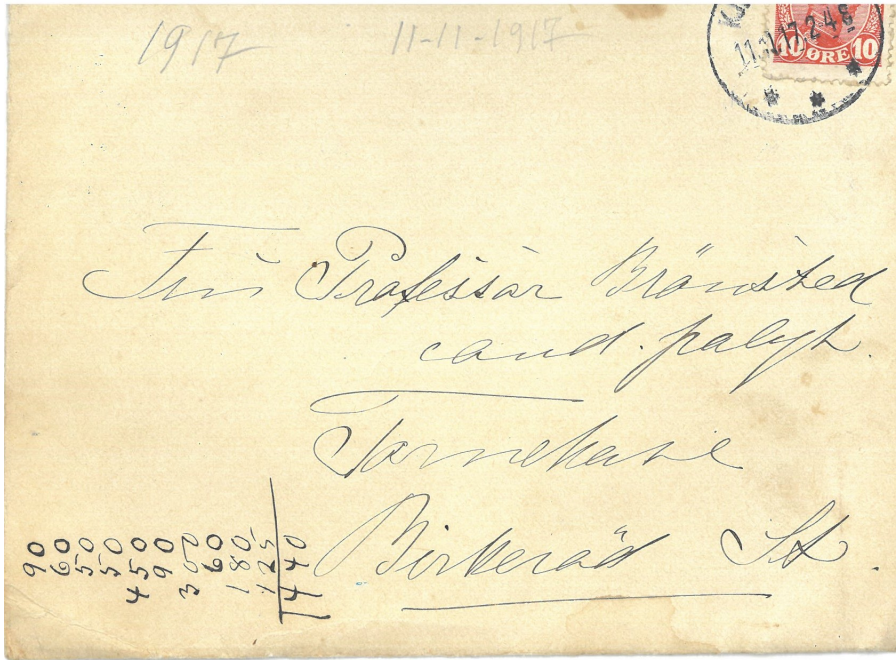 1917 11-11-1917
11.11.17. 2-4 E
10 ØRE 10
Fru Professor Brönsted
cand. polyt.
Birkeröd St.
90
60
50
50
450
90
300
60
180
125
1440